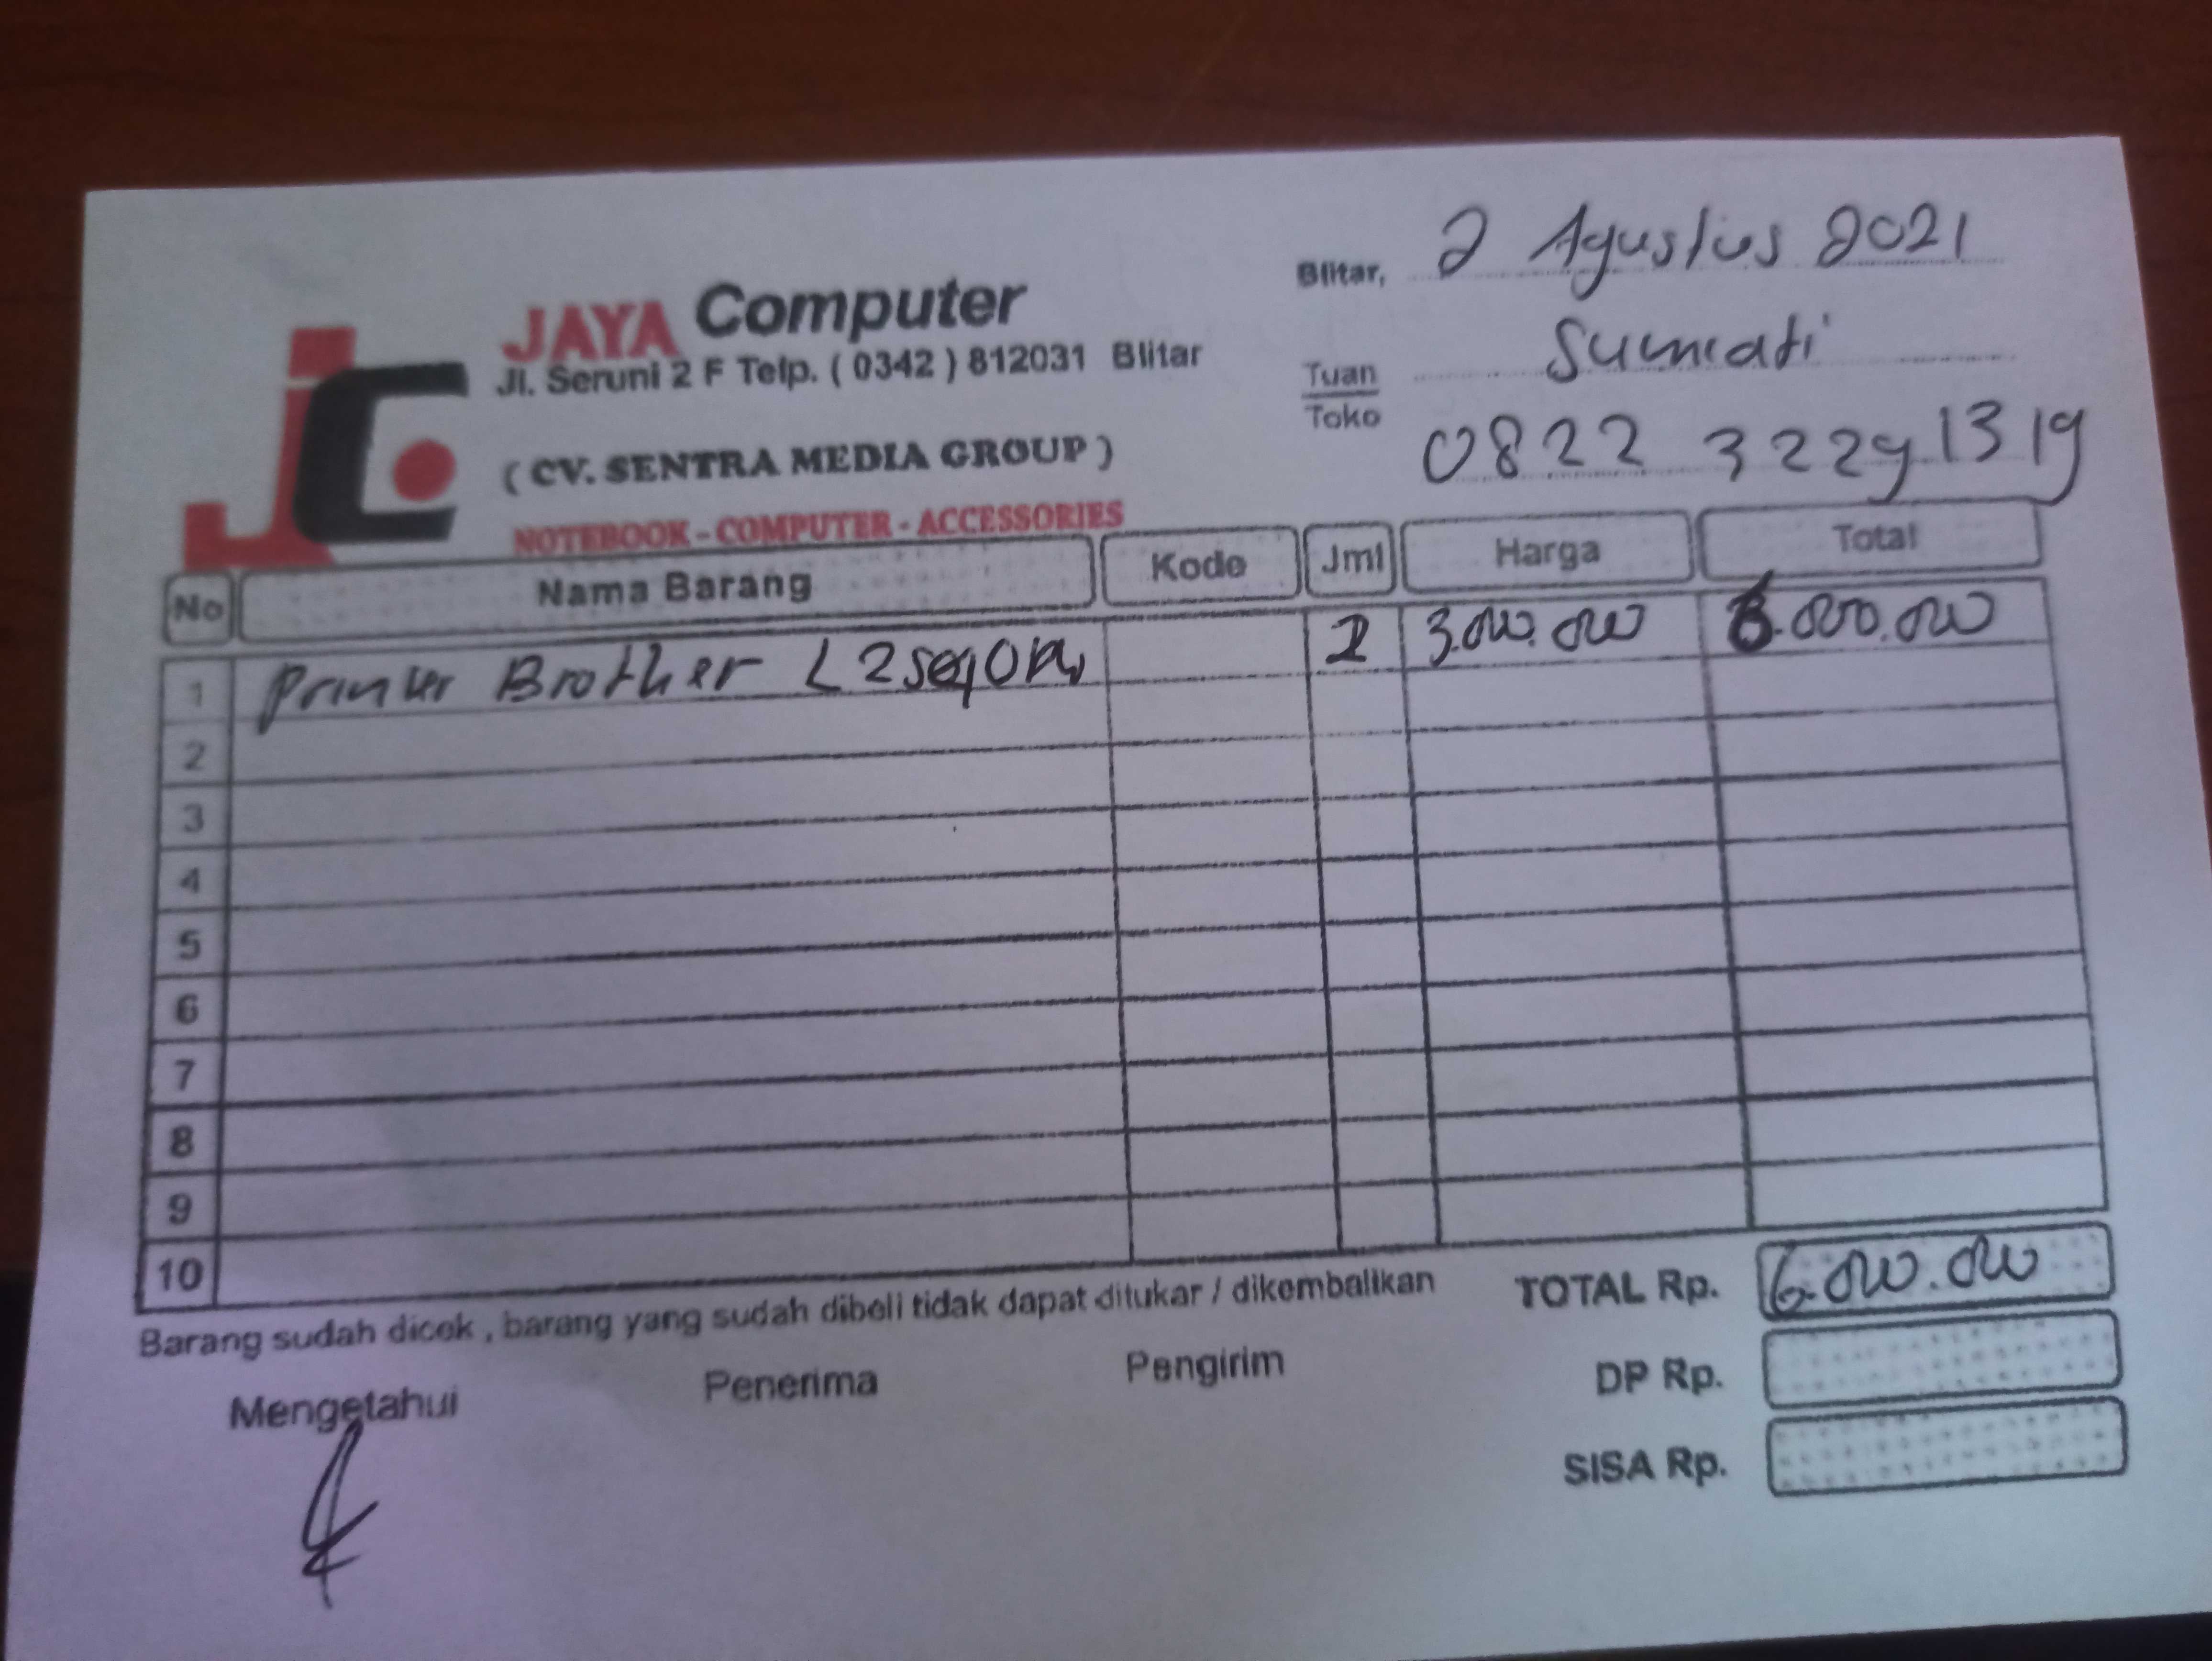 Blitar, 2 Agustus 2021
JAYA Computer
Jl. Seruni 2 F Telp. ( 0342 ) 812031 Blitar
Tuan
Toko
Sumiati
0822 3229 1319
( CV. SENTRA MEDIA GROUP )
NOTEBOOK - COMPUTER - ACCESSORIES
No Nama Barang Kode Jml Harga Total
1 Printer Brother 2 3.000.000 6.000.000
2
3
4
5
6
7
8
9
10
Barang sudah dicek , barang yang sudah dibeli tidak dapat ditukar / dikembalikan
TOTAL Rp. 6.000.000
Mengetahui Penerima Pengirim
DP Rp.
SISA Rp.